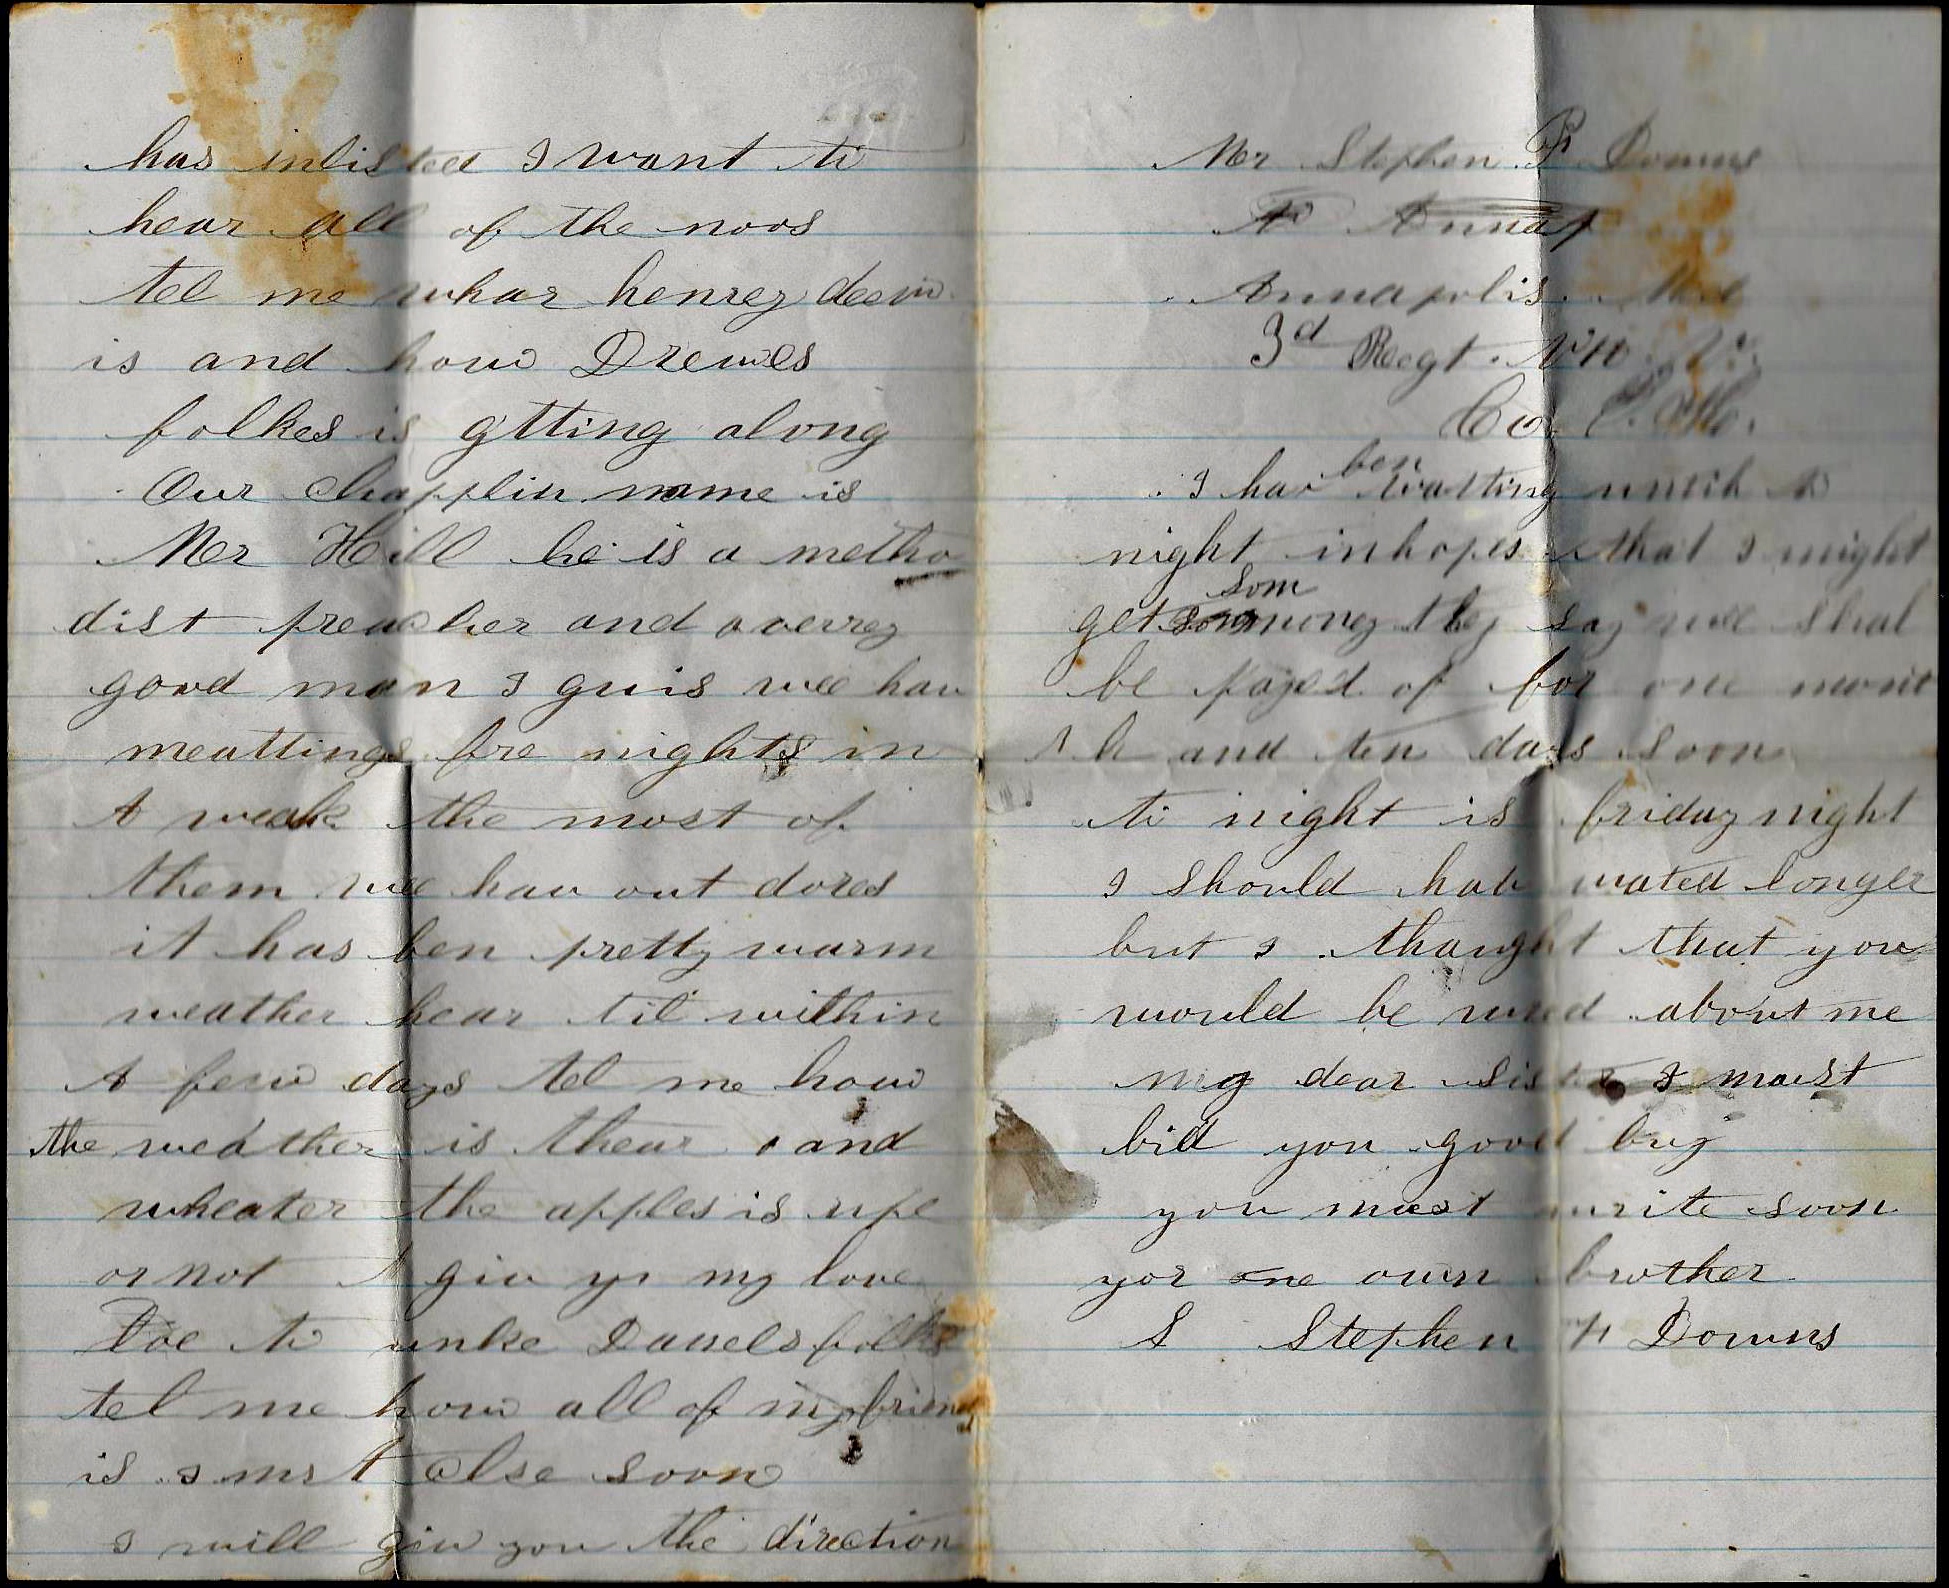 has inlisted I want to
hear all of the noos
tel me whar henrey
is and how Drewes
folkes is gtting along
Our chapplin name is
Mer Hill he is a metho
dist preacher and a verrey
good man I guis wee hav
meattings fre nights in
A weak the most of
them wee hav out dores
it has ben pretty warm
weather hear til within
A few days tel me how
the weather is thear and
wheater the apples is ripe
or not giv my love
to unke folks
tel me how all of my friend
is I mst close soon
I will giv you the direction
Mer Stephen Downs
Annap
Annapolis Md
3d Regt NH V
Co
I hav ben waiting until to
night in hopes that I might
get som money they say wee shal
be payed of for one mont
th and ten days soon
to night is friday night
I should hav wated longer
but I thaught that you
would be wred about me
my dear sister I must
bid you good buy
you must write soon
yor one own brother
S Stephen H Downs